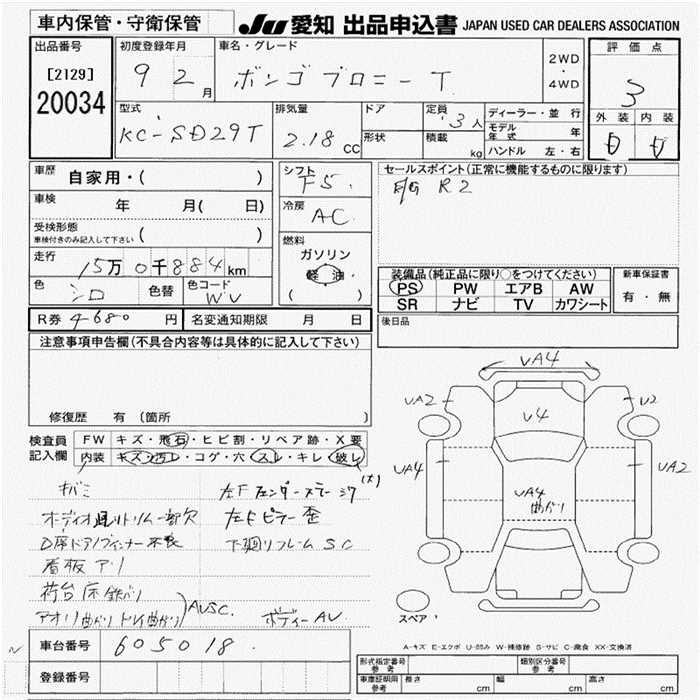 車内保管・守衛保管
JU 愛知 出品申込書 JAPAN USED CAR DEALERS ASSOCIATION
出品番号
[2129]
20034
初度登録年月
9 2 月
車名・グレード
ボンゴブローニーT
2WD
・
4WD
評価点
3
外装 内装
型式
KC-SD29T
排気量
2.18 cc
ドア
形状
定員
3人
積載
kg
ディーラー・並行
モデル年式 年
ハンドル 左・右
車歴
自家用・( )
車検
年 月( 日)
受検形態
車検付きのみ記入して下さい ( )
走行
15万0千884km
色
シロ
色替
色コード
WV
シフト
F5
冷房
AC
燃料
ガソリン
軽油
( )
セールスポイント(正常に機能するものに限ります)
R2
装備品(純正品に限り○をつけてください)
PS PW エアB AW
SR ナビ TV カワシート
新車保証書
有・無
R券 4680 円
名変通知期限 月 日
後日品
注意事項申告欄(不具合内容等は具体的に記入して下さい)
修復歴 有 (箇所 )
検査員
記入欄
FW キズ・飛石・ヒビ割・リペア跡・X要
内装 キズ・汚レ・コゲ・穴・スレ・キレ・破レ
キバミ
左Fフェンダーステー
(大)
左Fピラー歪
下廻リフレームSC
看板アリ
荷台床鉄バリ
アオリ曲がり
AUSC.
ボディーAU
VA4
VA2
U2
U4
UA4
VA2
VA4
曲がり
スペア
A-キズ E-エクボ U-凹み W-補修跡 S-サビ C-腐食 XX-交換済
車台番号
605018.
登録番号
形式指定番号
参考
類別区分番号
参考
車庫証明用
参考
長さ cm
幅 cm
高さ cm